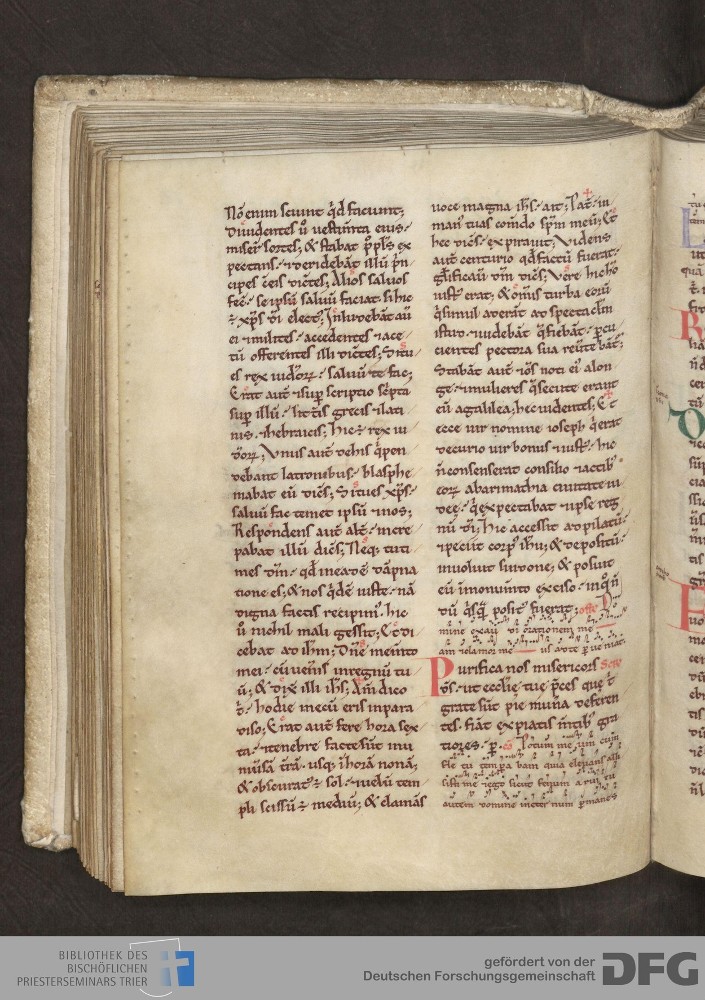 Nō enim sciunt qd̄ faciunt;
Diuidentes ů uestim̄ta eius·
miser̄ sortes; & stabat ppl̄s ex
pectans· ⁊deridebāt illū prin
cipes cū eis dic̄tes; Alios saluos
fec̄· se ipsū saluū faciat si hic
ē xp̄s dī elect᷒; Inludebāt aū
ei ⁊milites· accedentes ⁊ace
tū offerentes illi dic̄tes; Si tu
es rex iudꝫoꝝ· saluū te fac;
Erat aut̄ ⁊suꝑ scriptio sc̄pta
suꝑ illū· litt̄is grecis ⁊lati
nis· ⁊hebraicis; Hic ē rex iu
dꝫoꝝ; Vnus aut̄ dehis q̄ pen
debant latronibus· blasphe
mabat eū dic̄s; Si tu es xp̄s·
saluū fac temet ipsū ⁊nos;
Respondens aut̄ alt̄· incre
pabat illū dic̄s; Neq; tu ti
mes dm̄· qd̄ in eadē dāpna
tione es; & nos qdē iuste· nā
digna factis recipim᷒· hic
ů nichil mali gessit; Et di
cebat ad ihm̄; Dn̄e mem̄to
mei· cū uen̄is inregnū tu
ū; & dix̄ illi ihs̄; Am̄ dico
t̄· hodie mecū eris inpara
diso; Erat aut̄ fere hora sex
ta· ⁊tenebre facte sūt in u
niu̇sā t̄rā· usq; ⁊horā nonā;
& obscurat᷒ ē sol· ⁊uelū tem
pli scissū ē mediū; & clamās
uoce magna ihs̄· ait; Pat̄· in
man᷒ tuas com̄do spm̄ meū; Et
hec dic̄s· expirauit; Videns
aut̄ centurio qd̄ factū fuerat·
gl̄ificauit dm̄ dic̄s; Vere hic hō
iust᷒ erat; & om̄is turba eorū
q̄ simul aderāt ad spectaclm̄
istud· ⁊uidebāt q̄ fiebāt· ꝑcu
cientes pectora sua reu̇tebāt᷒;
Stabāt aut̄ om̄s noti ei᷒ alon
ge· ⁊mulieres q̄ secute erant
eū agalilea; hec uidentes; Et
ecce uir nomine ioseph q̄ erat
decurio uir bonus ⁊iust᷒· hic
n̄ consenserat consilio ⁊actib᷒
eoꝝ abarimathia ciuitate iu
dee· q̄ expectabat ⁊ipse reg
nū dī; Hic accessit ad pilatū·
⁊peciit corp᷒ ihū; & depositū·
inuoluit sindone; & posuit
eū inmonum̄to exciso· inq̊ n̄
dū q̄sq̄ posit᷒ fuerat; off᷒ Do
mine exau di orationem me
am ⁊clamor me us ad te ꝑ ue niat·
Purifica nos misericors Secr̄
ds̄· ut ecclie tue p̄ces que t̄
grate sūt pie mun̄a deferen
tes· fiāt expiatis m̄tib᷒ gra
tiores· ꝑ. cō Potum me um cum
fle tu tem pa bam quia eleuans alli
sisti me ⁊ego sicut fenum a rui tu
autem domine ineter num ꝑmanes
BIBLIOTHEK DES
BISCHÖFLICHEN
PRIESTERSEMINARS TRIER
gefördert von der
Deutschen Forschungsgemeinschaft
DFG